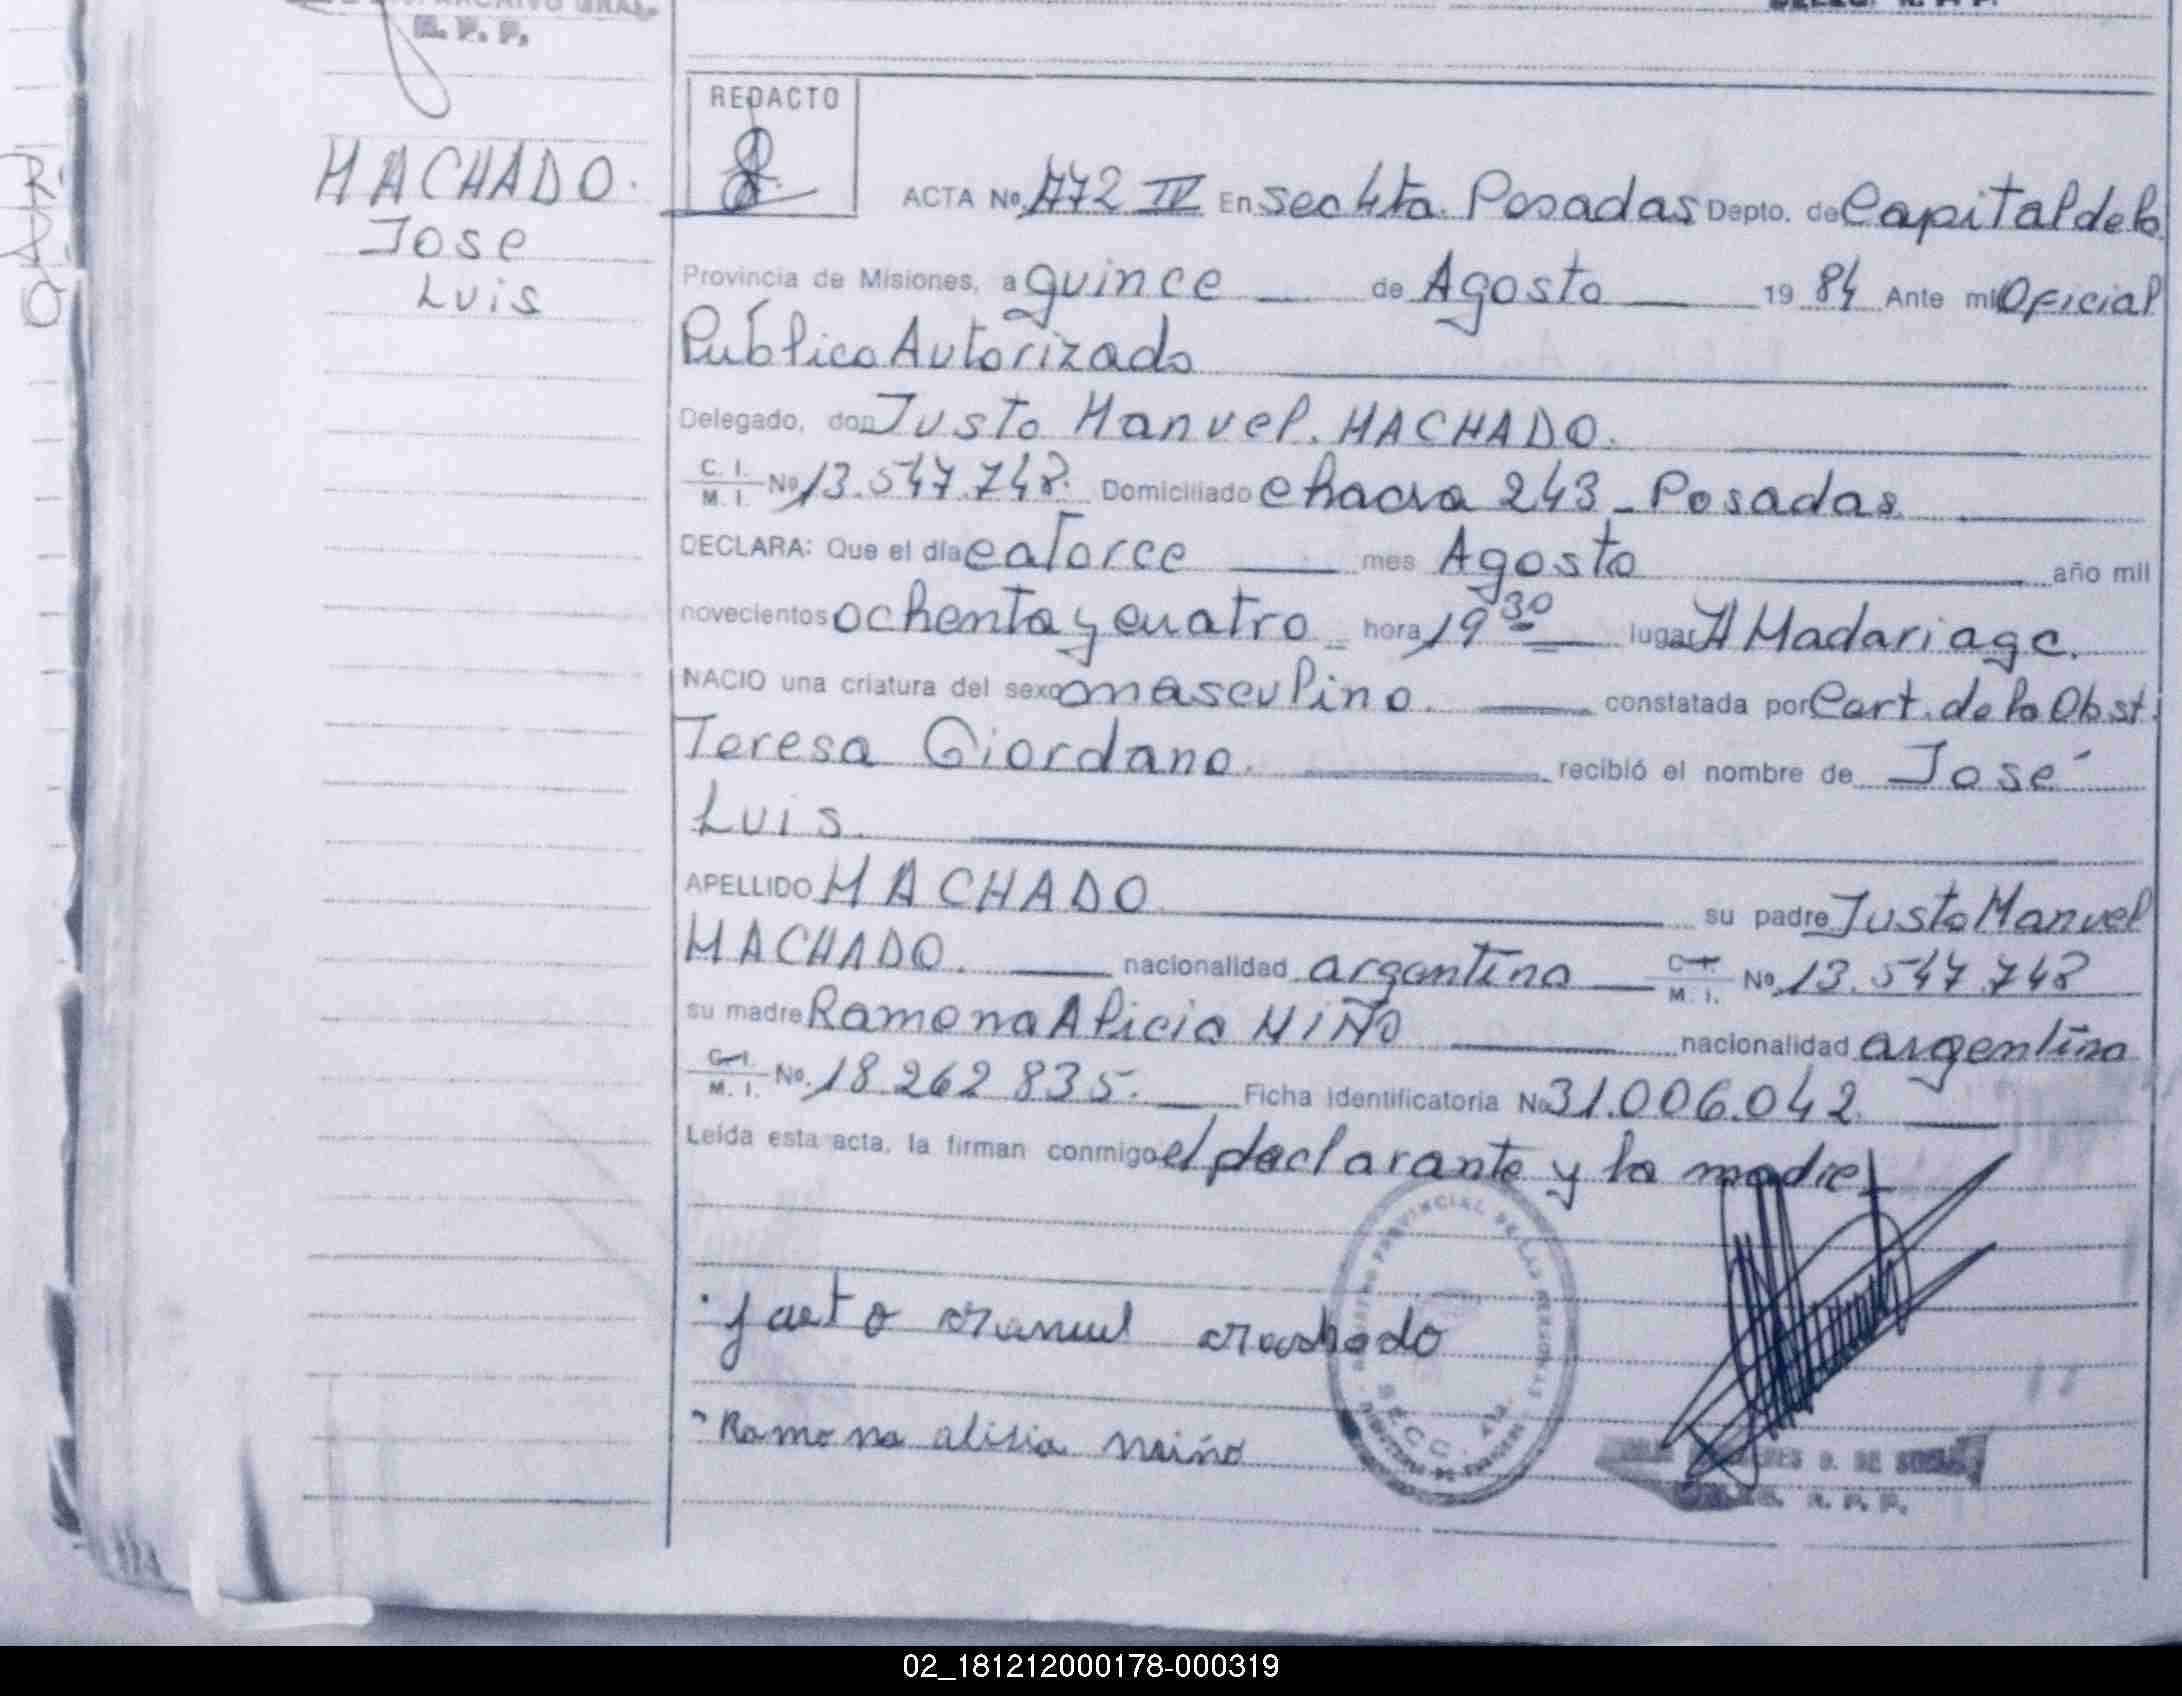 ARCHIVO GRAL.
R. P. P.
MACHADO.
Jose
Luis
REDACTO
ACTA Nº 772 IV En Sec 4ta. Posadas Depto. de Capital de la
Provincia de Misiones, a quince de Agosto 19 84 Ante mi Oficial
Público Autorizado
Delegado, don Justo Manuel. MACHADO.
C. I. / M. I. Nº 13.547.748. Domiciliado Chacra 243 - Posadas
DECLARA: Que el día catorce mes Agosto año mil
novecientos ochenta y cuatro hora 19 30 lugar H Madariaga.
NACIO una criatura del sexo masculino. constatada por Cert. de la Obst.
Teresa Giordano. recibió el nombre de José
Luis.
APELLIDO MACHADO su padre Justo Manuel
MACHADO. nacionalidad argentina C. I. / M. I. Nº 13.547.748
su madre Ramona Alicia NIÑO nacionalidad argentina
C. I. / M. I. Nº. 18.262 835. Ficha Identificatoria Nº 31.006.042.
Leída esta acta, la firman conmigo el declarante y la madre
REGISTRO PROVINCIAL DE LAS PERSONAS
SECC. 4ta.
Justo Manuel Machado
Ramona alisia niño
R. P. P.
02_181212000178-000319